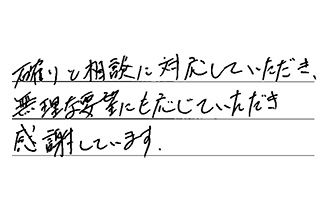 確りと相談に対応していただき、
無理な要望にも応じていただき
感謝しています.